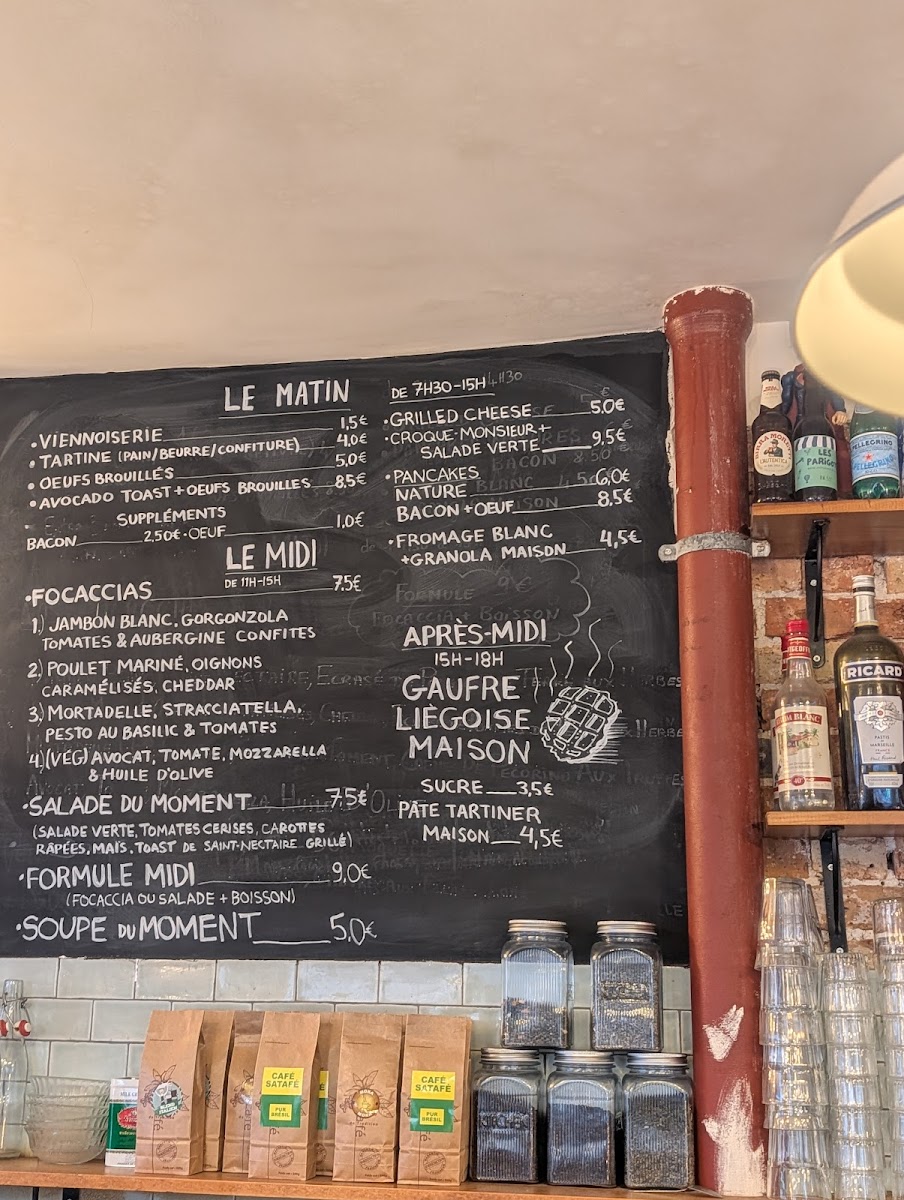 LE MATIN
• VIENNOISERIE 1,5€
• TARTINE (PAIN/BEURRE/CONFITURE) 4,0€
• OEUFS BROUILLÉS 5,0€
• AVOCADO TOAST + OEUFS BROUILLES 8,5€
SUPPLÉMENTS
BACON 2,50€ · OEUF 1,0€
LE MIDI
DE 11H-15H
• FOCACCIAS 7,5€
1.) JAMBON BLANC, GORGONZOLA
TOMATES & AUBERGINE CONFITES
2) POULET MARINÉ, OIGNONS
CARAMÉLISÉS, CHEDDAR
3.) MORTADELLE, STRACCIATELLA,
PESTO AU BASILIC & TOMATES
4) (VEG) AVOCAT, TOMATE, MOZZARELLA
& HUILE D'OLIVE
• SALADE DU MOMENT 7,5€
(SALADE VERTE, TOMATES CERISES, CAROTTES
RÂPÉES, MAÏS, TOAST DE SAINT-NECTAIRE GRILLÉ)
• FORMULE MIDI 9,0€
(FOCACCIA OU SALADE + BOISSON)
• SOUPE DU MOMENT 5,0€
DE 7H30-15H
14H30
• GRILLED CHEESE 5,0€
• CROQUE-MONSIEUR +
SALADE VERTE 9,5€
• PANCAKES
NATURE 6,0€
BACON + OEUF 8,5€
• FROMAGE BLANC
+ GRANOLA MAISON 4,5€
FORMULE 9€
FOCACCIA + BOISSON
APRÈS-MIDI
15H-18H
GAUFRE
LIÉGOISE
MAISON
SUCRE 3,5€
PÂTE TARTINER
MAISON 4,5€
L'AUTENTICA
LES
PARIGO
PELLEGRINO
RICARD
PASTIS
DE MARSEILLE
CAFÉ
SATAFÉ
PUR
BRÉSIL
CAFÉ
SATAFÉ
PUR
BRÉSIL